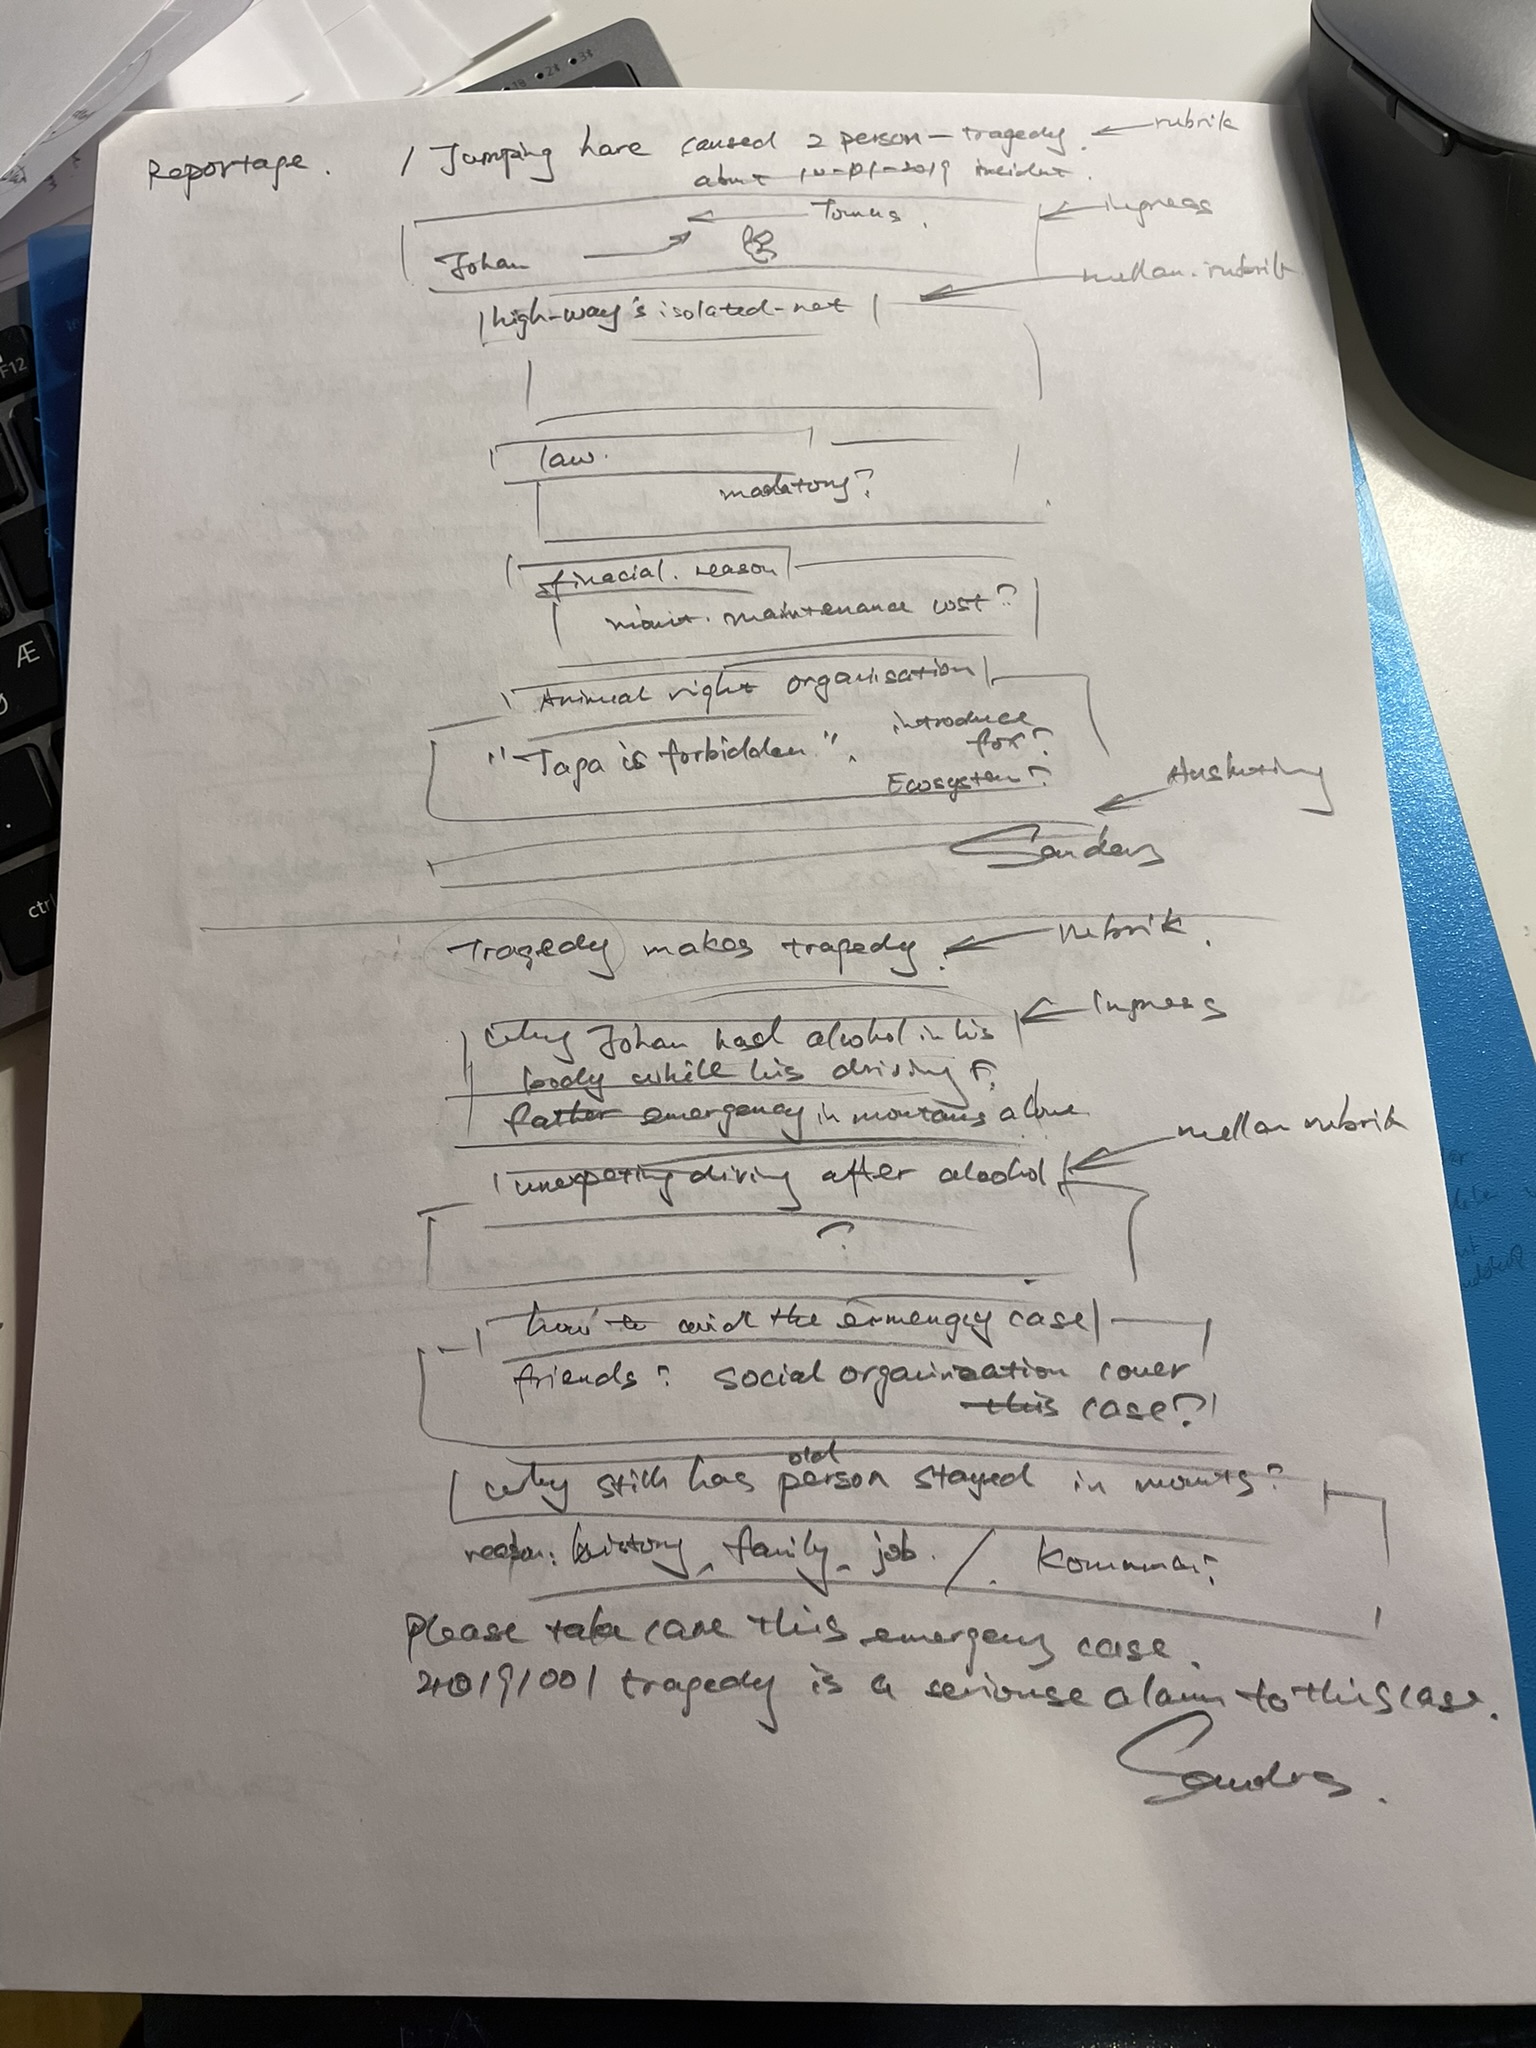 Reportage. / Jumping hare caused 2 person-tragedy. ← rubrik
about 10-01-2019 incident.
← Tomas. ← ingress
Johan →
← mellan.rubrik
high-way's isolated-net
law.
madatory?
finacial. reason
maintenance cost?
Animal right organisation
"Tapa is forbidden". introduce
fox?
Ecosystem?
←
Sanders
Tragedy makes tragedy. ← rubrik.
← ingress
Why Johan had alcohol in his
body while his driving?
father emergency in montans alone
← mellan rubrik
unexpeting diving after alcohol
?
how to avoid the ermengcy case
friends? social organization cover
this case?
old
why still has person stayed in mounts?
reason: history, family, job. /.
Please take care this emergency case.
20191001 tragedy is a seriouse alarm to this case.
Sanders.